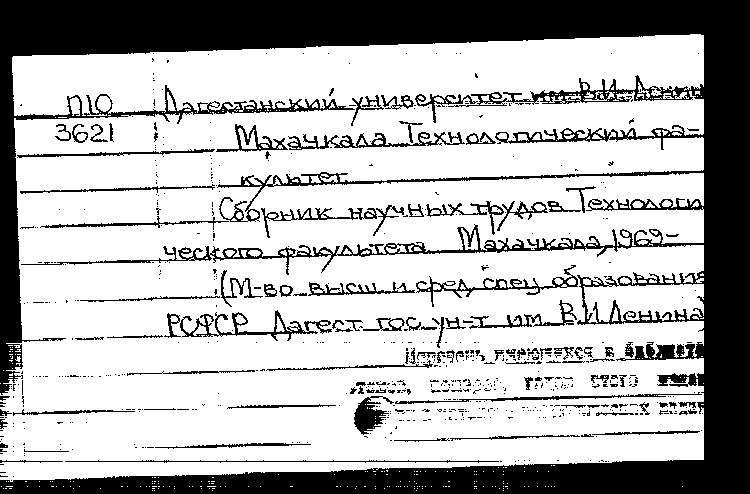 П10 Дагестанский университет им В.И. Ленин
3621 Махачкала Технологический фа-
культет
Сборник научных трудов Технологи
ческого факультета Махачкала, 1969-
(М-во высш и сред спец образования
РСФСР Дагест гос ун-т им В.И Ленина)
Перечень имеющихся в библиоте
томов, номеров, годов этого издан